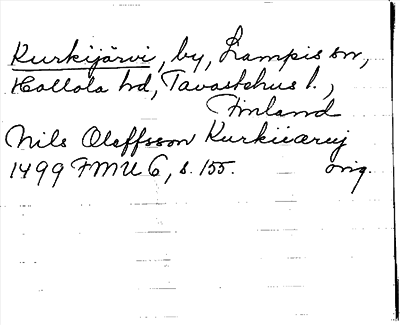 Kurkijärvi, by, Lampis sn,
Hollola hd, Tavastehus l.,
Finland
Nils Oleffsson Kurkiieruj
1499 FMU 6, s. 155. orig.